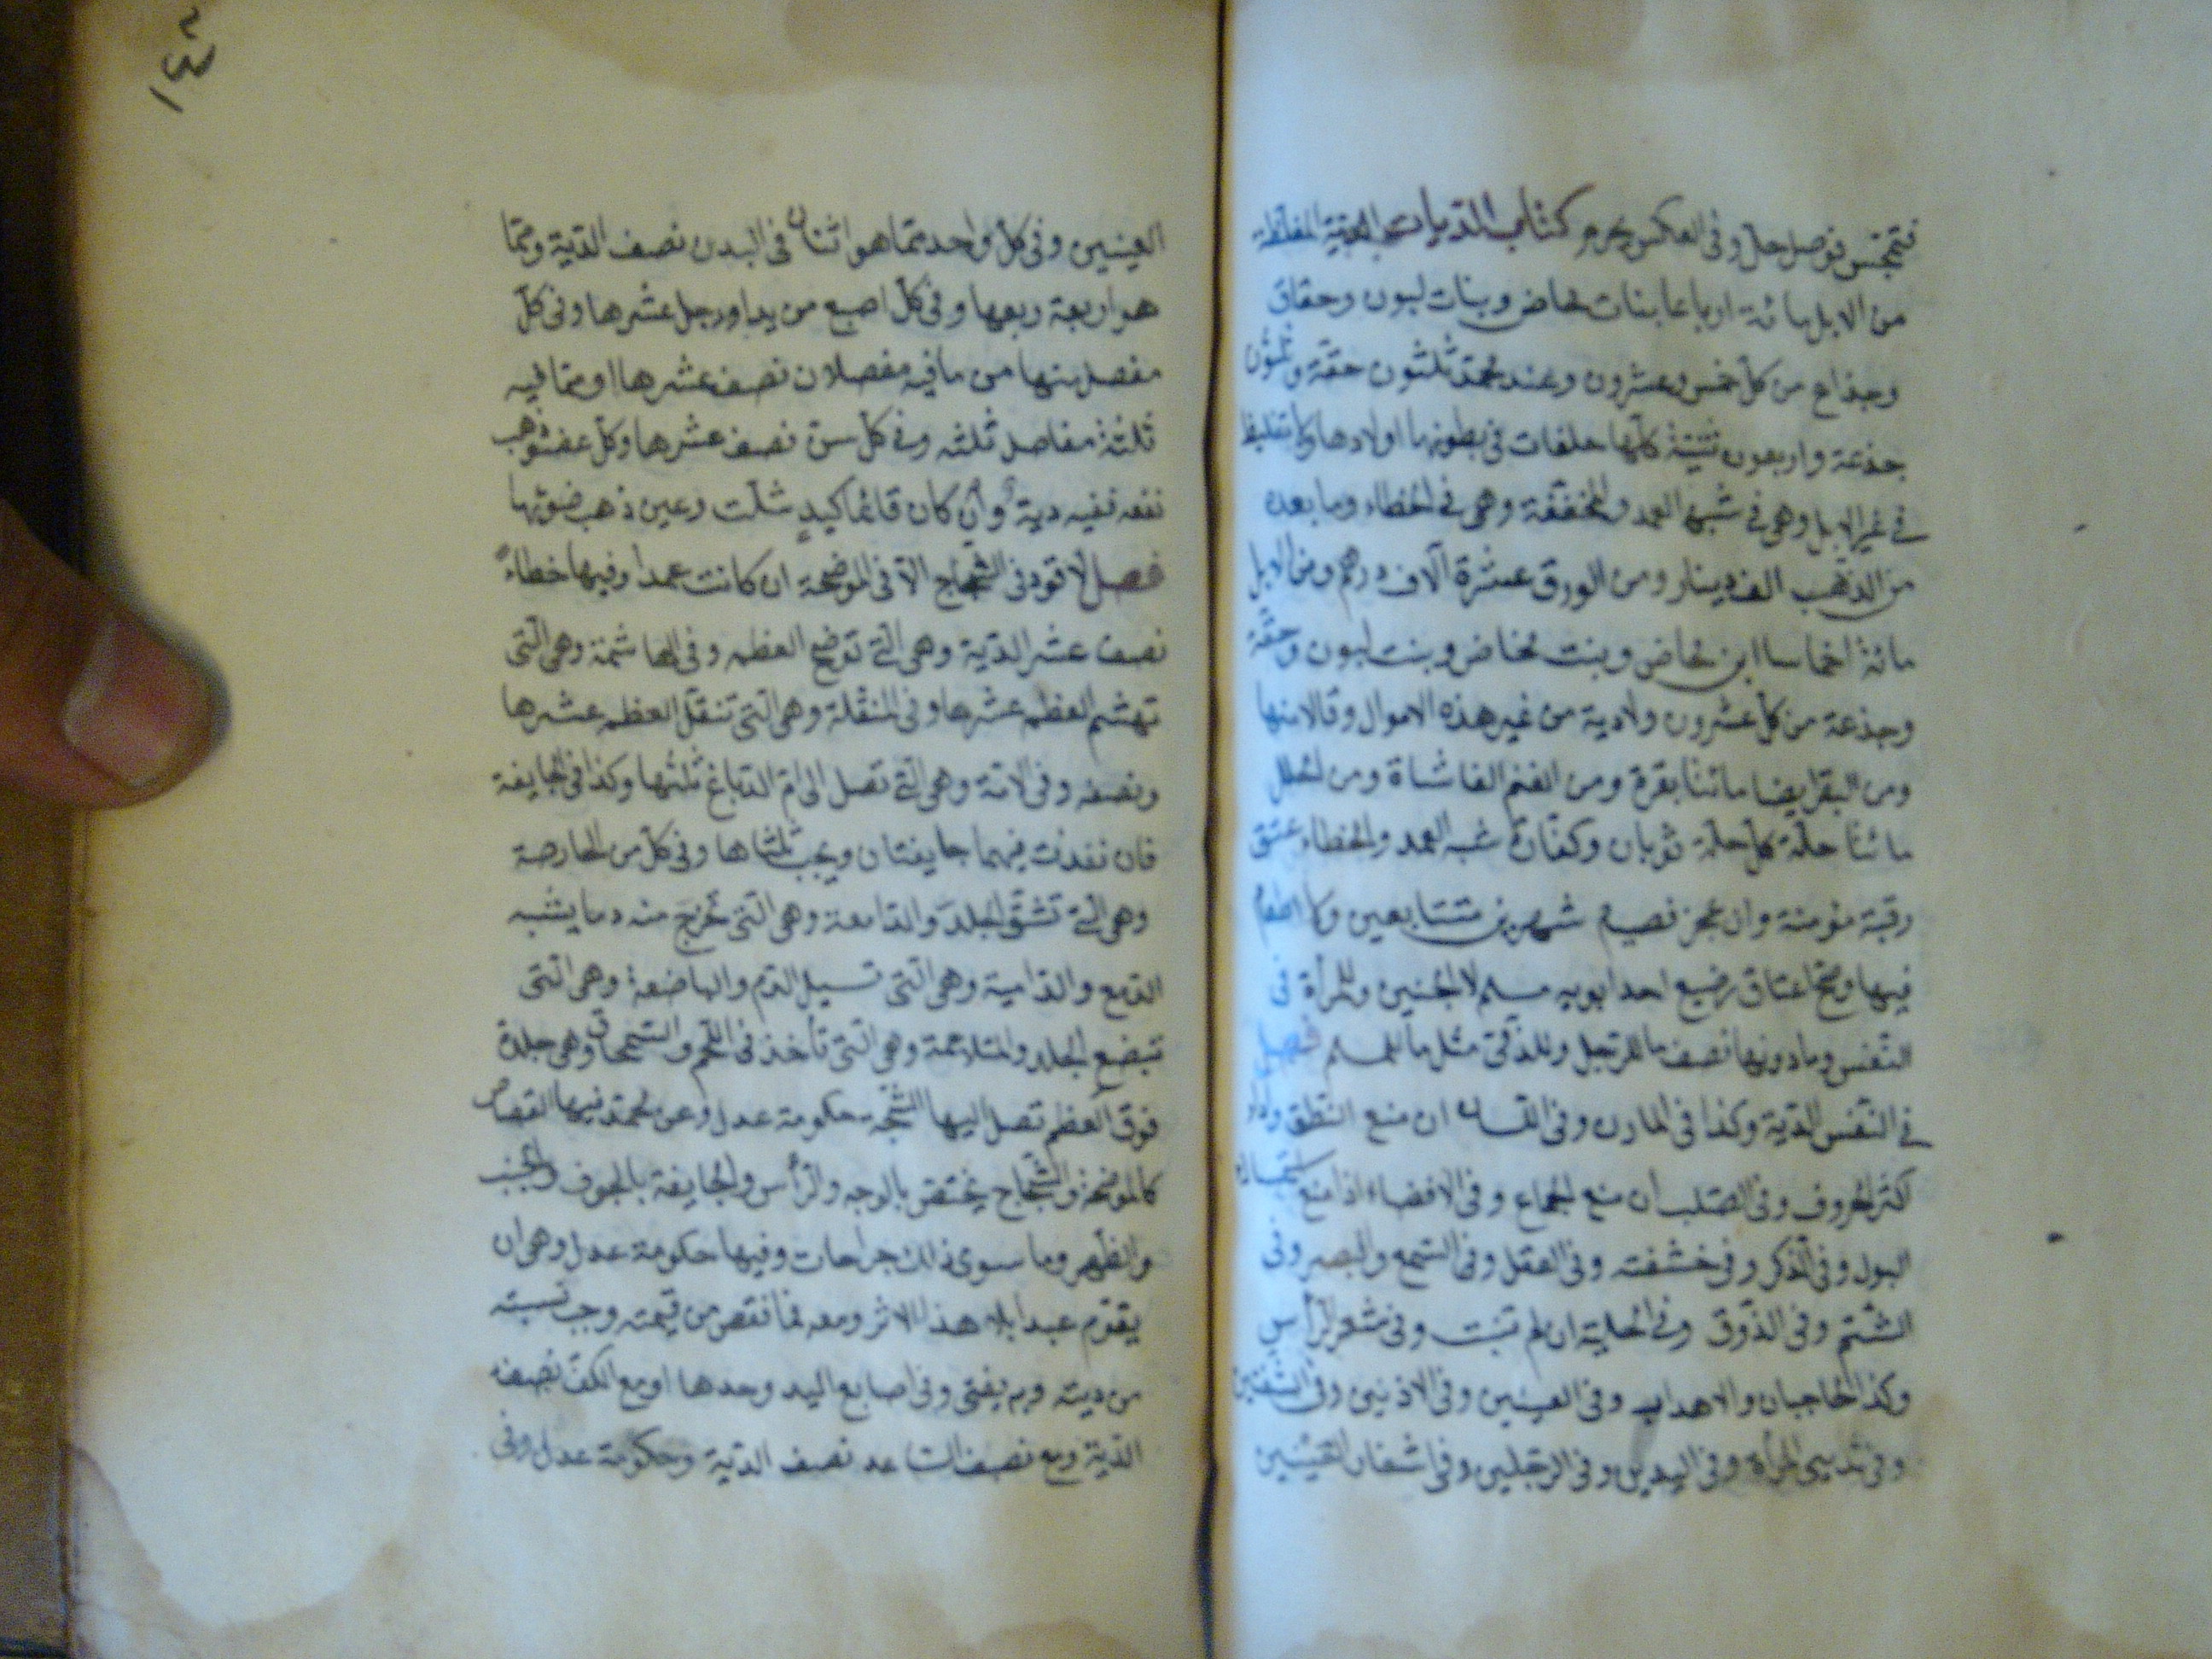 فتمجس فوصل حل وفى العكس يحرم كتاب الديات الدية المغلظة
من الابل مائة ارباعا بنات مخاض وبنات لبون وحقاق
وجذاع من كل خمس وعشرون وعند محمد ثلثون حقة وثلثون
جذعة واربعون ثنية كلها خلفات فى بطونها اولادها ولا تغليظ
فى غير الابل وهى فى شبه العمد والمخففة وهى فى الخطاء وما بعده
من الذهب الف دينار ومن الورق عشرة آلاف درهم ومن الابل
مائة اخماسا ابن مخاض وبنت مخاض وبنت لبون وحقة
وجذعة من كل عشرون ولا دية من غير هذه الاموال وقالا منها
ومن البقر ايضا مائتا بقرة ومن الغنم الفا شاة ومن الحلل
مائتا حلة كل حلة ثوبان وكفارة شبه العمد والخطاء عتق
رقبة مؤمنة وان عجز فصيام شهرين متتابعين ولا اطعام
فيها وصح اعتاق رضيع احد ابويه مسلم لا الجنين وللمرأة فى
النفس وما دونها نصف ما للرجل وللذمى مثل ما للمسلم فصل
فى النفس الدية وكذا فى المارن وفى اللسان ان منع النطق واداء
اكثر الحروف وفى الصلب ان منع الجماع وفى الافضاء اذا منع استمساك
البول وفى الذكر وفى حشفته وفى العقل وفى السمع والبصر وفى
الشم وفى الذوق وفى اللحية ان لم تنبت وفى شعر الرأس
وكذا الحاجبان والاهداب وفى العينين وفى الاذنين وفى الشفتين
وفى ثديى المرأة وفى اليدين وفى الرجلين وفى اشفار العينين
١٤٣
العينين وفى كل واحد مما هو اثنان فى البدن نصف الدية ومما
هو اربعة ربعها وفى كل اصبع من يد او رجل عشرها وفى كل
مفصل منها من ما فيه مفصلان نصف عشرها او مما فيه
ثلثة مفاصل ثلثه وفى كل سن نصف عشرها وكل عضو ذهب
نفعه ففيه دية وان كان قائما كيد شلت وعين ذهب ضوئها
فصل لا قود فى الشجاج الا فى الموضحة ان كانت عمدا وفيها خطاء
نصف عشر الدية وهى التى توضح العظم وفى الهاشمة وهى التى
تهشم العظم عشرها وفى المنقلة وهى التى تنقل العظم عشرها
ونصفه وفى الامة وهى التى تصل الى ام الدماغ ثلثها وكذا فى الجايفة
فان نفذت فهما جايفتان ويجب ثلثاها وفى كل من الحارصة
وهى التى تشق الجلد والدامعة وهى التى تخرج منه دما يشبه
الدمع والدامية وهى التى تسيل الدم والباضعة وهى التى
تبضع الجلد والمتلاحمة وهى التى تأخذ فى اللحم والسمحاق وهى جلدة
فوق العظم تصل اليها الشجة حكومة عدل وعن محمد فيها القصاص
كالموضحة والشجاج يختص بالوجه والرأس والجايفة بالجوف والجنب
والظهر وما سوى ذلك جراحات وفيها حكومة عدل وهى ان
يقوم عبدا بلا هذا الاثر ومعه فما نقص من قيمته وجب نسبته
من ديته وبه يفتى وفى اصابع اليد وحدها او مع الكف نصف
الدية ومع نصف الساعد نصف الدية وحكومة عدل وفى